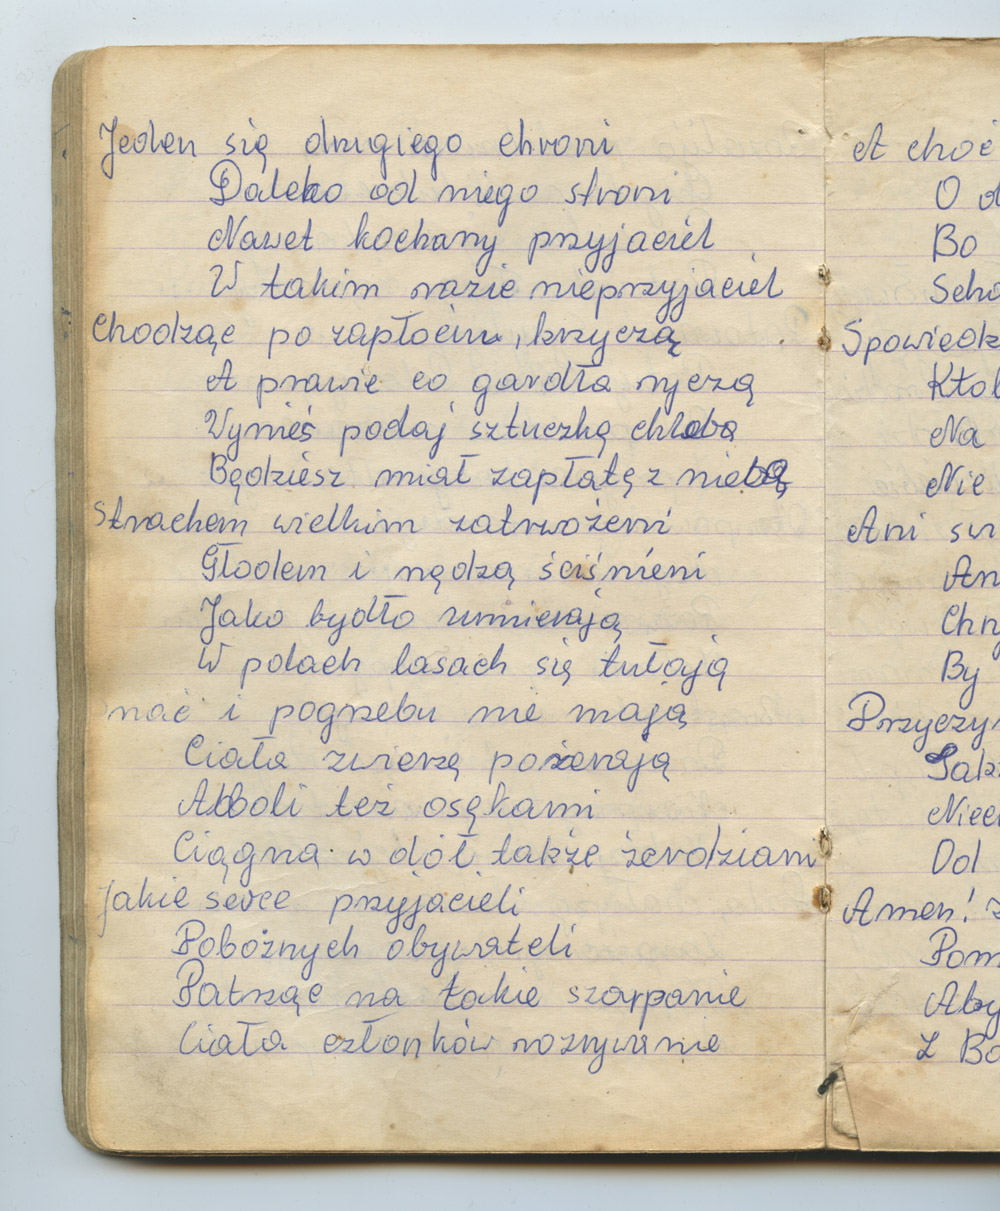 Jeden się drugiego chroni
Daleko od niego stroni
Nawet kochany przyjaciel
W takim razie nieprzyjaciel
Chodząc po zapłociu, krzyczą
A prawie co gardła ryczą
Wymieś podaj sztuczkę chleba
Będziesz miał zapłatę z nieba
Strachem wielkim zatrwożeni
Głodem i nędzą ściśnieni
Jako bydło umierają
W polach lasach się tułają
nać i pogrzebu nie mają
Ciała zwierzę pożerają
Abboli też osękami
Ciągna w dół także żerdziami
Jakie serce przyjacieli
Pobożnych obywateli
Patrząc na takie szarpanie
Ciała członków rozrywanie
A choć
O
Bo
Spowiedz
Na
Nie
Ani
By
Przyczyn
Amen!
Aby
Z Bo